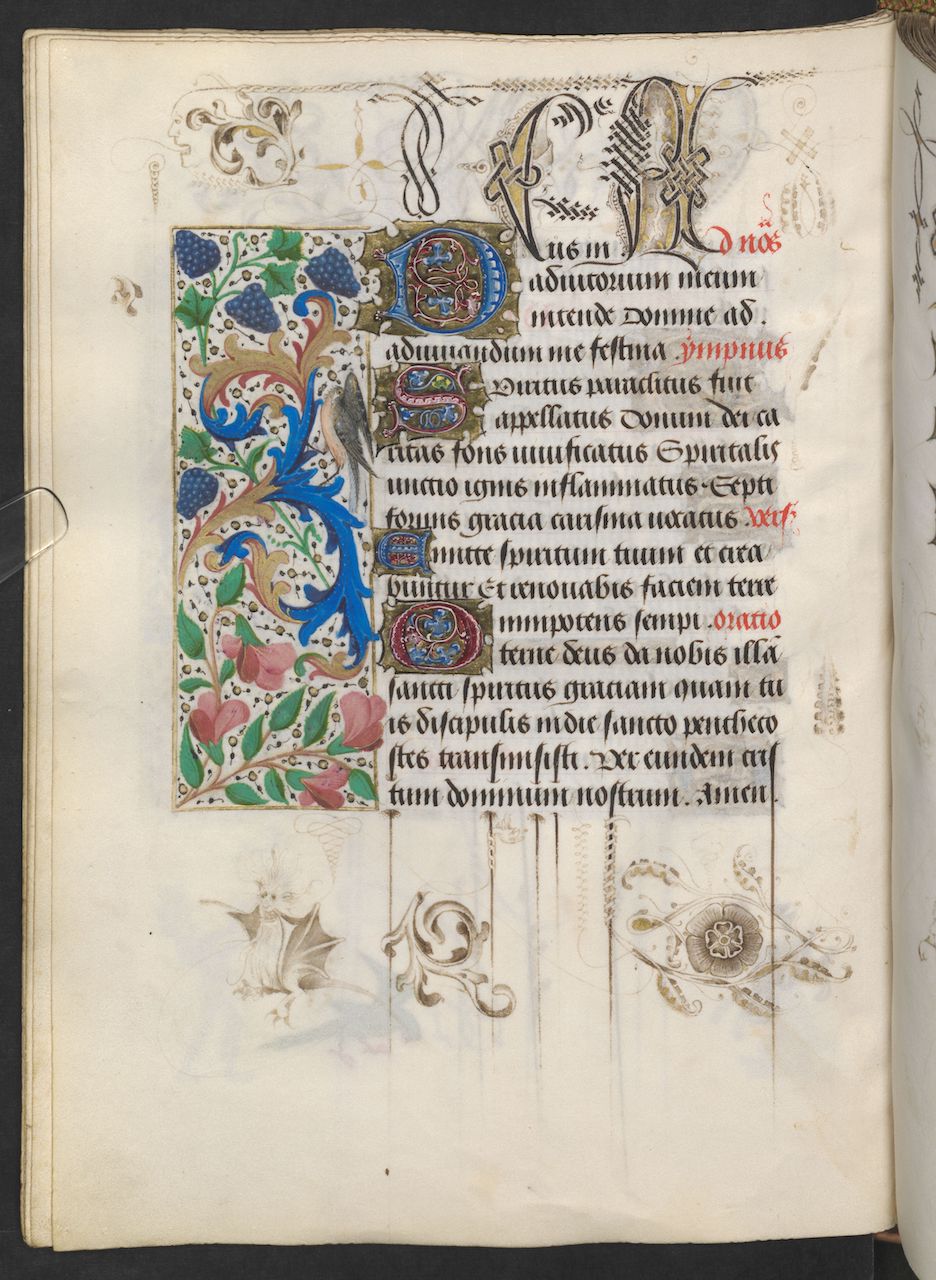 Deus in Ad nōs
adiutorium meum
intende Domine ad
adiuuandum me festina ẏmpnus
Spiritus paraclitus fuit
appellatus Donum dei ca
ritas fons uiuificatus Spiritalis
unctio ignis inflammatus Septi
formis gracia carisma uocatus vers
Emitte spiritum tuum et crea
buntur Et renouabis faciem terre
Omnipotens sempi oratio
terne deus da nobis illā
sancti spiritus graciam quam tu
is discipulis in die sancto pentheco
stes transmisisti. Per eundem cris
tum dominum nostrum. Amen.